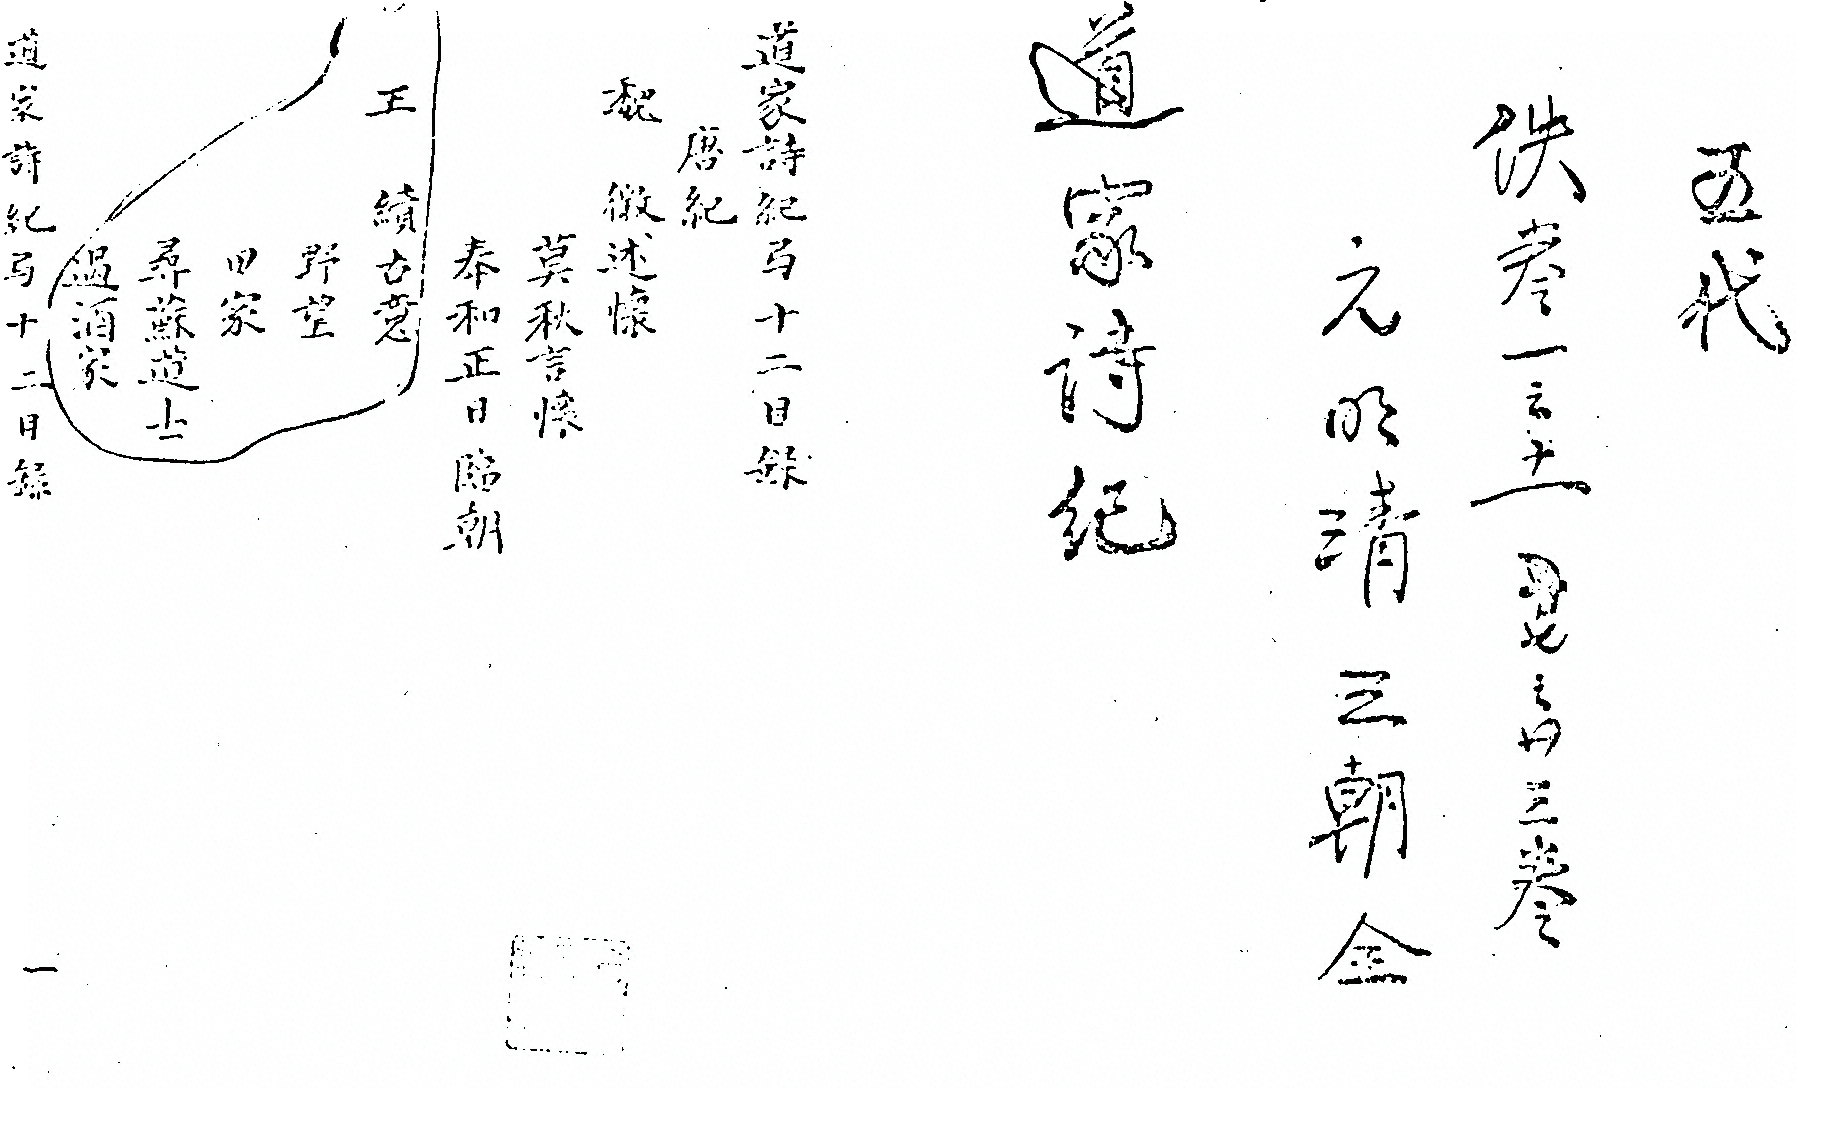 五代
佚卷一之十一 又七之廿三卷
元明清三朝全
道家詩紀
道家詩紀弓十二目錄
唐紀
魏 徵述懷
莫秋言懷
奉和正日臨朝
王 績古意
野望
田家
尋蘇道士
過酒家
道家詩紀弓十二目錄
一